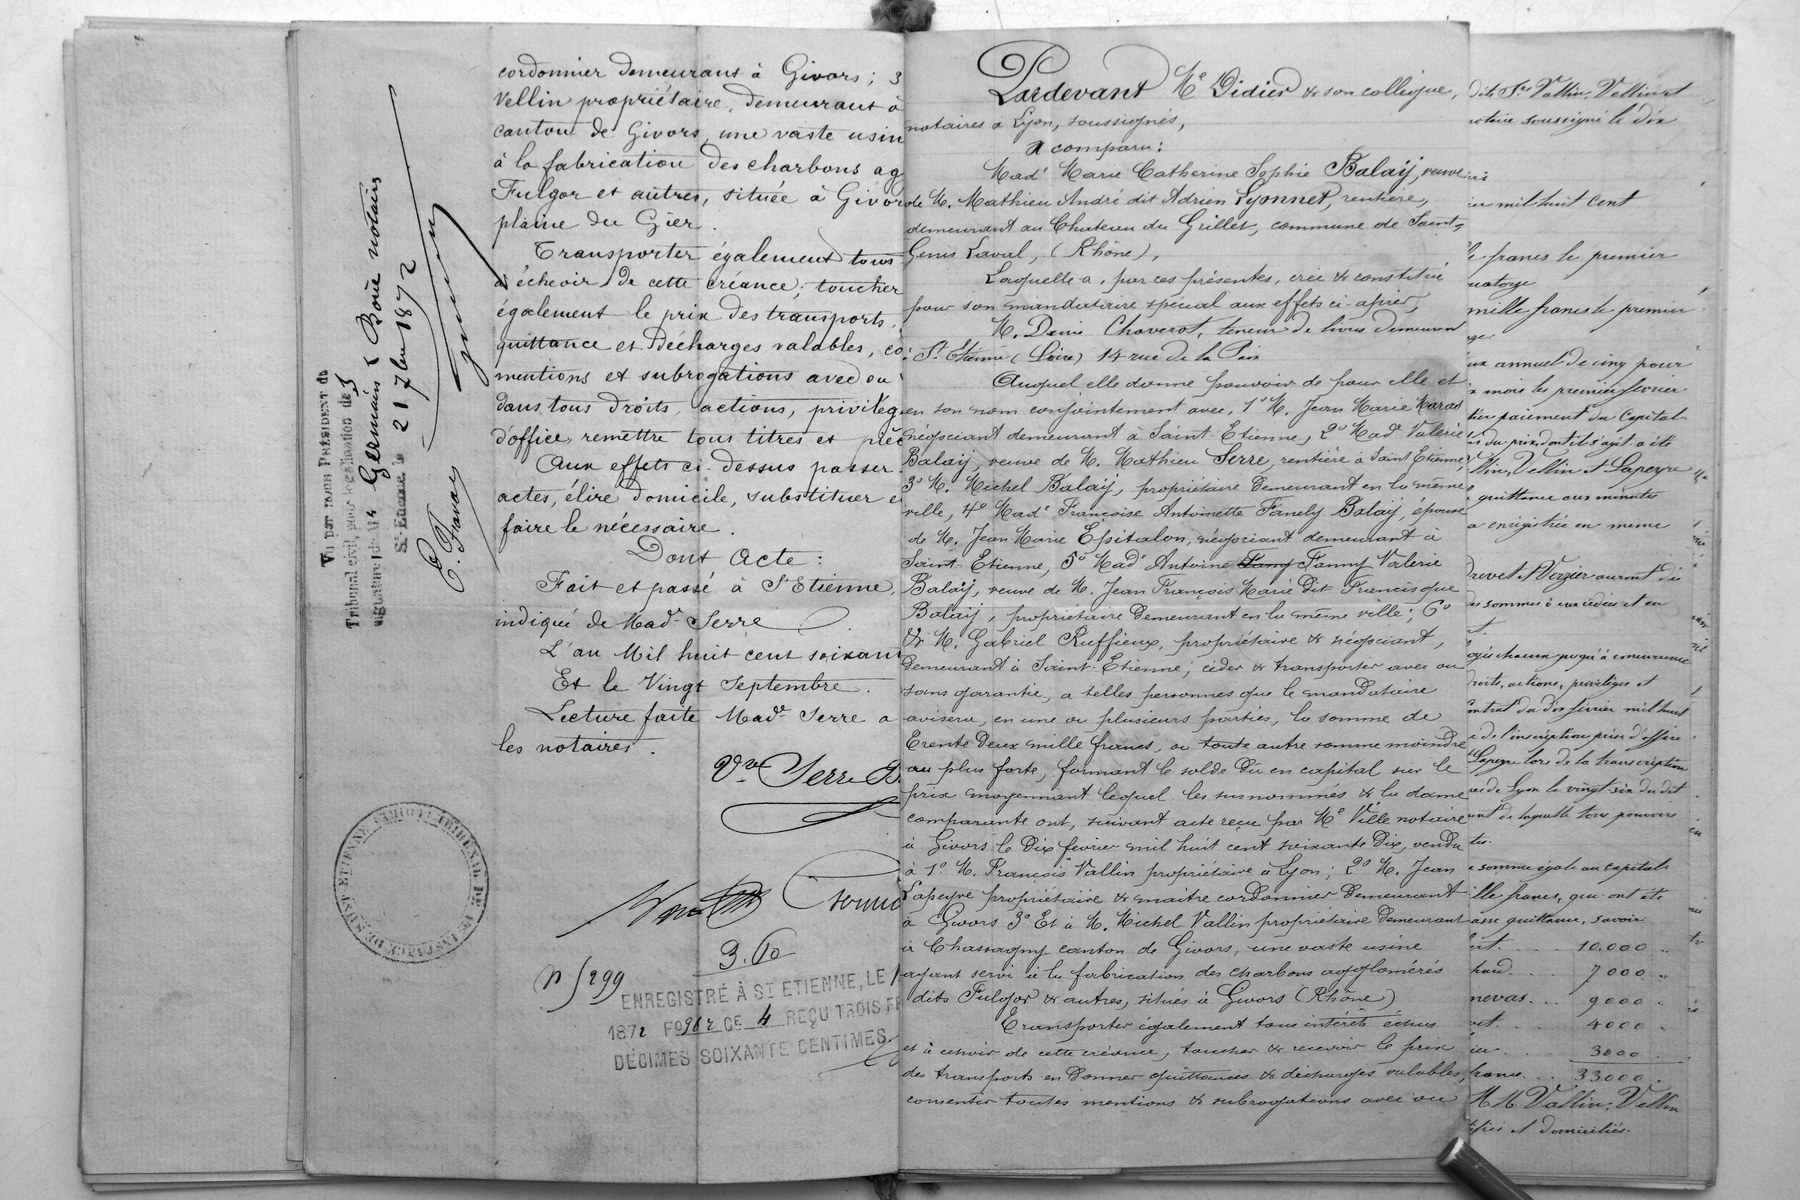 cordonnier demeurant à Givors; 3
Vellin propriétaire, demeurant à
canton de Givors, une vaste usin
à la fabrication des charbons ag
Fulgor et autres, située à Givor
plaine du Gier.
Transporter également tous
à échoir de cette créance; toucher
également le prix des transports,
quittance et décharges valables, co
mentions et subrogations avec ou
dans tous droits, actions, privilèg
d'office, remettre tous titres et pièc
Aux effets ci-dessus passer
actes, élire domicile, substituer e
faire le nécessaire.
Dont Acte:
Fait et passé à St Etienne,
indiqué de Made Serre
L'an Mil huit cent soixan
Et le Vingt Septembre.
Lecture faite Made Serre a
les notaires.
Vve Serre B
3.60
n 5299
ENREGISTRÉ À ST ETIENNE, LE
1872 Fo 96 r Ce 4 REÇU TROIS FR
DÉCIMES SOIXANTE CENTIMES.
VU PAR NOUS PRÉSIDENT du
Tribunal civil, pour légalisation de
signature de Me Germain & Boüe notaires
St-Etienne, le 21 7bre 1872
Pardevant Me Didier & son collègue,
notaires à Lyon, soussignés,
A comparu:
Made Marie Catherine Sophie Balaÿ, veuve
de M. Mathieu André dit Adrien Lyonnet, rentière,
demeurant au Chateau du Grillet, commune de Saint-
Genis Laval, (Rhône),
Laquelle a, par ces présentes, créé & constitué
pour son mandataire spécial aux effets ci après,
M. Denis Chaverot, teneur de livres demeurant
à St Etienne (Loire) 14 rue de la Paix
Auquel elle donne pouvoir de pour elle et
en son nom conjointement avec, 1° M. Jean Marie
négociant demeurant à Saint-Etienne, 2° Made Valérie
Balaÿ, veuve de M. Mathieu Serre, rentière à Saint Etienne,
3° M. Michel Balaÿ, propriétaire demeurant en la même
ville, 4° Made Françoise Antoinette Fanely Balaÿ, épouse
de M. Jean Marie Épitalon, négociant demeurant à
Saint-Etienne, 5° Made Antoine Fany Fanny Valérie
Balaÿ, veuve de M. Jean François Marie dit Francisque
Balaÿ, propriétaire demeurant en la même ville; 6°
& M. Gabriel Ruffieux, propriétaire & négociant,
demeurant à Saint-Etienne; céder & transporter avec ou
sans garantie, à telles personnes que le mandataire
avisera, en une ou plusieurs parties, la somme de
Trente deux mille francs, ou toute autre somme moindre
au plus forte, formant le solde dû en capital sur le
prix moyennant lequel les susnommés & la dame
comparante ont, suivant acte reçu par Me Ville notaire
à Givors le Dix février mil huit cent soixante Dix, vendu
à 1° M. François Vallin propriétaire à Lyon; 2° M. Jean
Lapeyre propriétaire & maître cordonnier demeurant
à Givors 3° Et à M. Michel Vallin propriétaire demeurant
à Chassagny canton de Givors, une vaste usine
ayant servi à la fabrication des charbons agglomérés
dits Fulgor & autres, située à Givors (Rhône)
Transporter également tous intérêts échus
et à échoir de cette créance, toucher & recevoir le prix
des transports en donner quittances & décharges valables,
consentir toutes mentions & subrogations avec ou
dits Srs Vallin, Vellin et
notaire soussigné le dix
mil huit cent
francs le premier
mille francs le premier
aux annuel de cinq pour
mois les premier février
paiement du Capital
du prix dont il s'agit a été
Vellin et Lapeyre
quittance aux minutes
a enregistrée en même
Drevet et Verzier auront du
sommes à eux cédées et en
chacun jusqu'à concurrence
droits, actions, privilèges et
contrat du dix février mil huit
de l'inscription prise d'office
Lapeyre lors de la transcription
de Lyon le vingt six du dit
de laquelle tous pouvoirs
somme égale au capital
mille francs, qui ont été
quittance, savoir
10.000
7000
9000
4000
3000
francs 33000
MM Vallin, Vellin
et domiciliés.